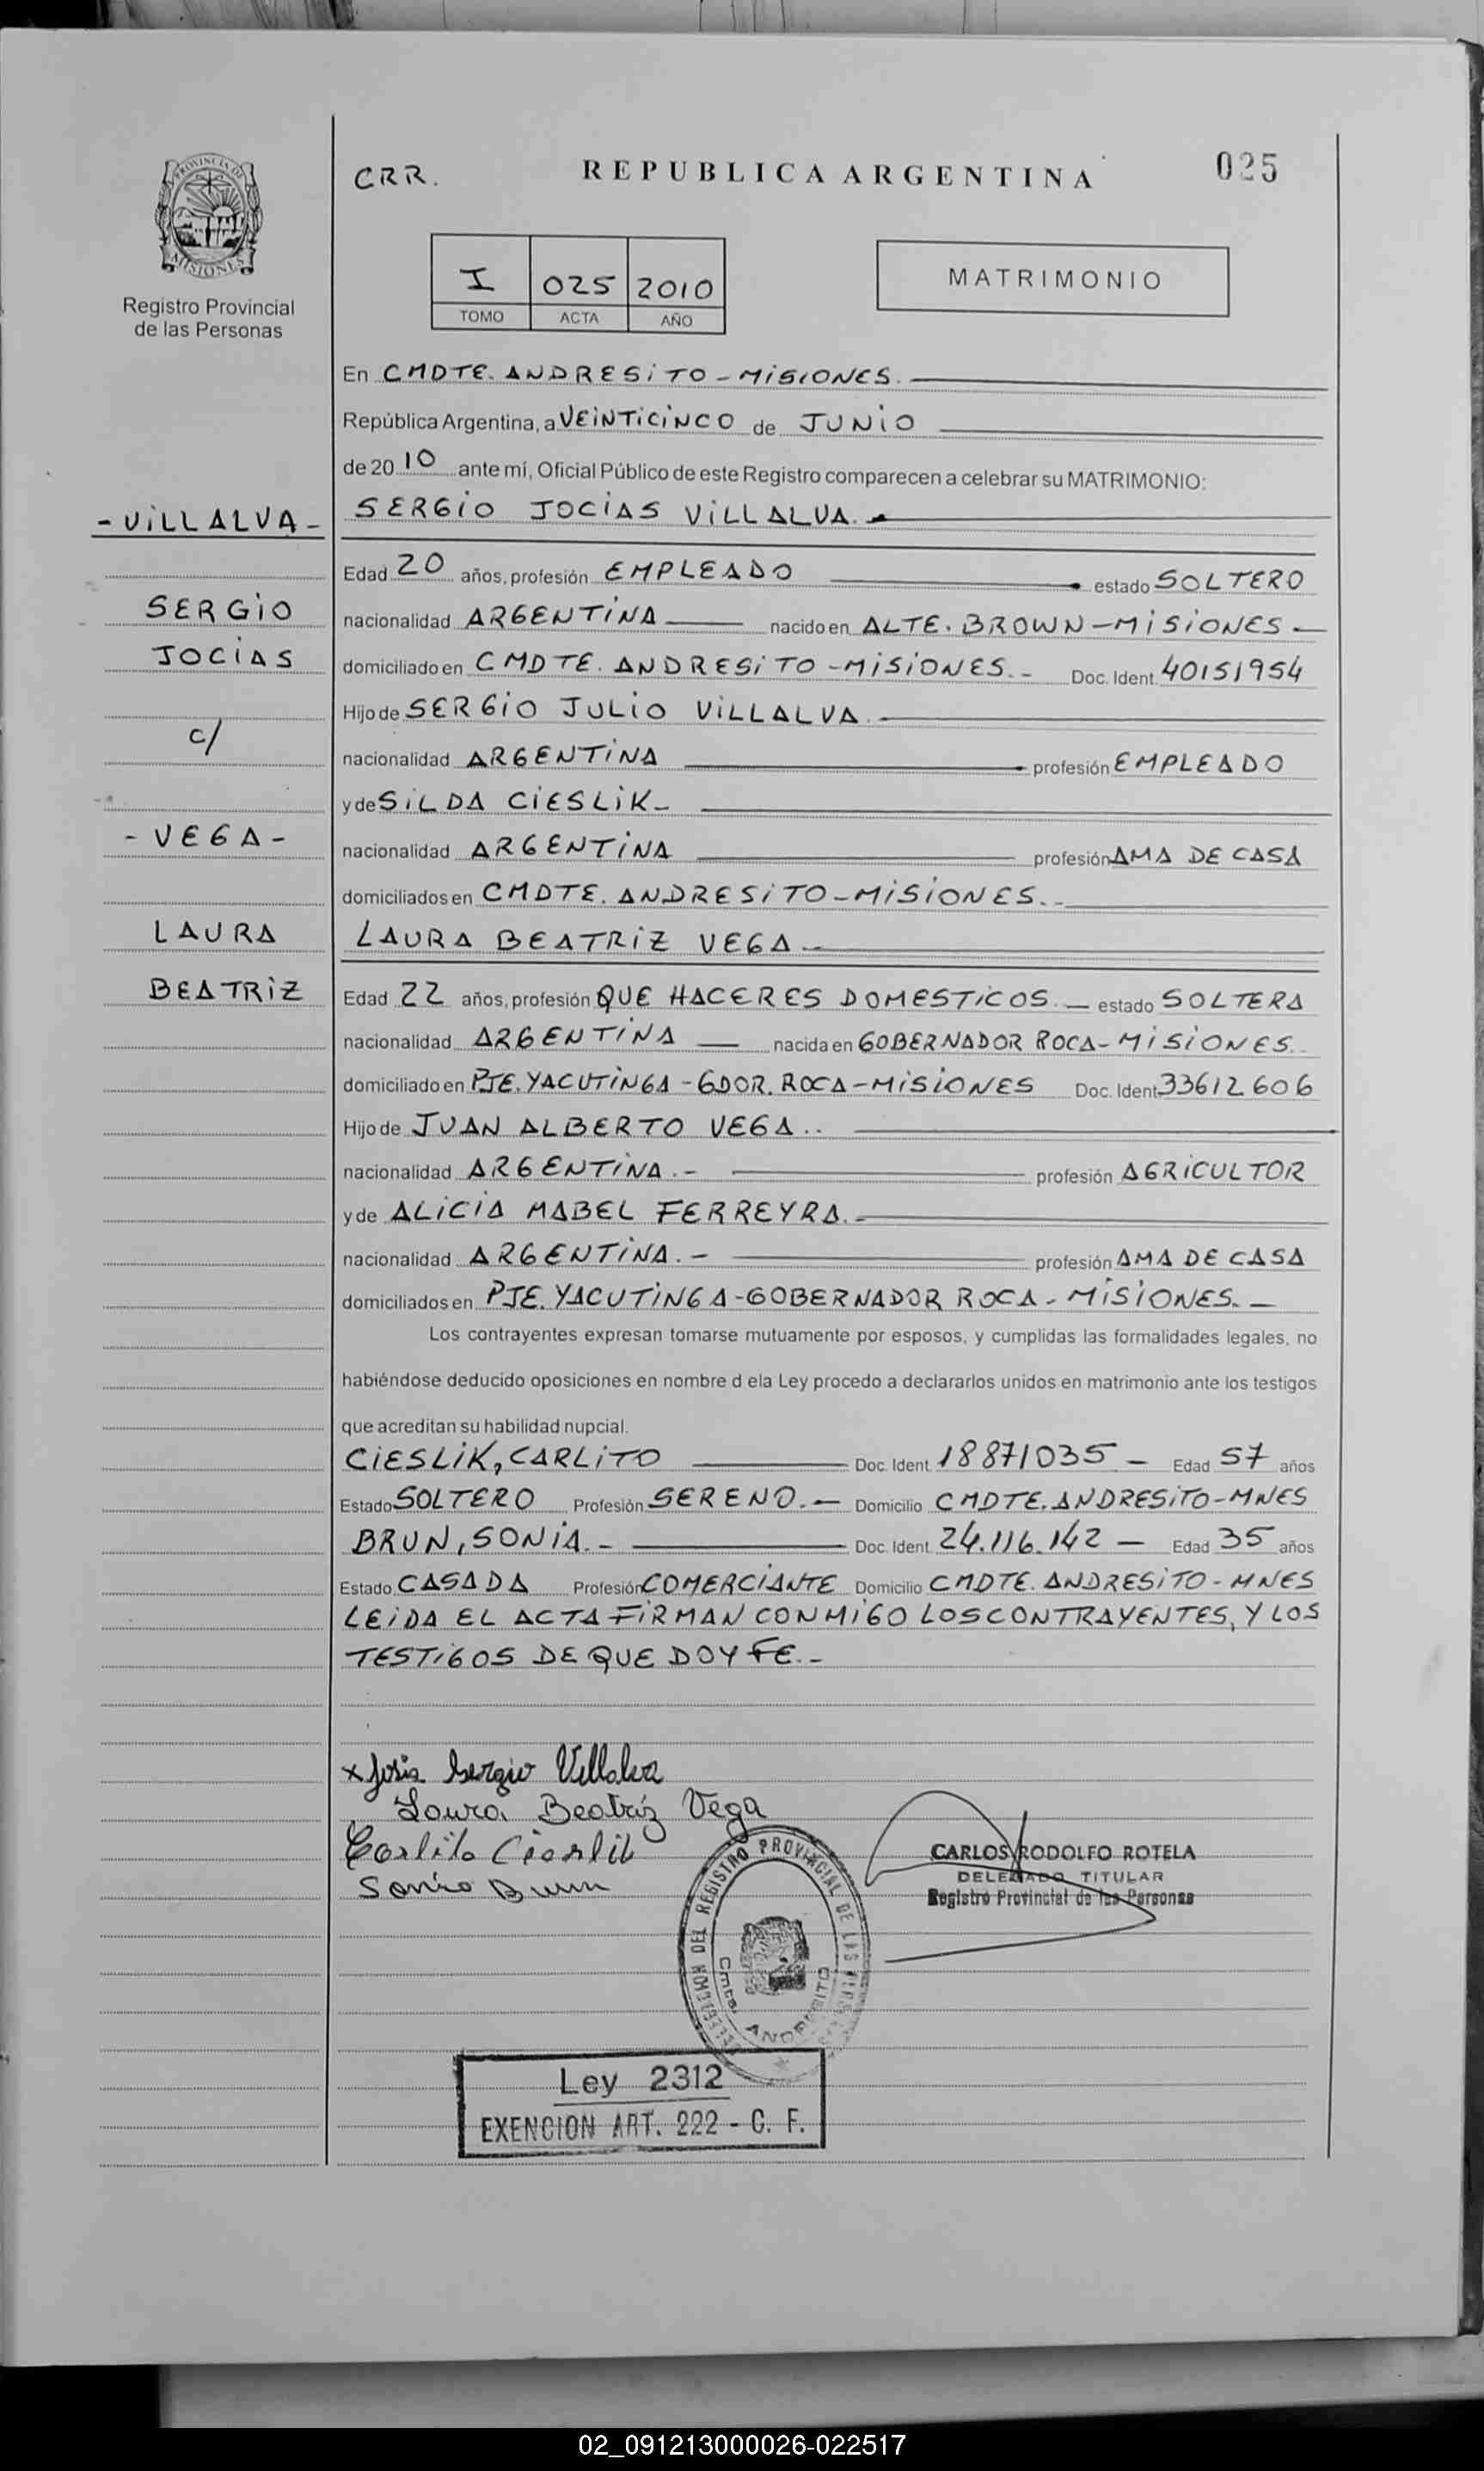 PROVINCIA DE
MISIONES
Registro Provincial
de las Personas
CRR.
REPUBLICA ARGENTINA
025
I 025 2010
TOMO ACTA AÑO
MATRIMONIO
En CMDTE. ANDRESITO - MISIONES.
República Argentina, a VEINTICINCO de JUNIO
de 20 10 ante mí, Oficial Público de este Registro comparecen a celebrar su MATRIMONIO:
- VILLALVA -
SERGIO JOCIAS VILLALVA.
Edad 20 años, profesión EMPLEADO estado SOLTERO
SERGIO
nacionalidad ARGENTINA nacido en ALTE. BROWN - MISIONES
JOCIAS
domiciliado en CMDTE. ANDRESITO - MISIONES. - Doc. Ident. 40151954
Hijo de SERGIO JULIO VILLALVA.
c/
nacionalidad ARGENTINA profesión EMPLEADO
y de SILDA CIESLIK -
- VEGA -
nacionalidad ARGENTINA profesión AMA DE CASA
domiciliados en CMDTE. ANDRESITO - MISIONES. -
LAURA
LAURA BEATRIZ VEGA
BEATRIZ
Edad 22 años, profesión QUE HACERES DOMESTICOS. - estado SOLTERA
nacionalidad ARGENTINA nacida en GOBERNADOR ROCA - MISIONES.
domiciliado en PJE. YACUTINGA - GDOR. ROCA - MISIONES Doc. Ident. 33612606
Hijo de JUAN ALBERTO VEGA..
nacionalidad ARGENTINA. - profesión AGRICULTOR
y de ALICIA MABEL FERREYRA. -
nacionalidad ARGENTINA. - profesión AMA DE CASA
domiciliados en PJE. YACUTINGA - GOBERNADOR ROCA - MISIONES. -
Los contrayentes expresan tomarse mutuamente por esposos, y cumplidas las formalidades legales, no
habiéndose deducido oposiciones en nombre d ela Ley procedo a declararlos unidos en matrimonio ante los testigos
que acreditan su habilidad nupcial.
CIESLIK, CARLITO Doc. Ident. 18871035 - Edad 57 años
Estado SOLTERO Profesión SERENO. - Domicilio CMDTE. ANDRESITO - MNES
BRUN, SONIA. - Doc. Ident. 24.116.142 - Edad 35 años
Estado CASADA Profesión COMERCIANTE Domicilio CMDTE. ANDRESITO - MNES
LEIDA EL ACTA FIRMAN CONMIGO LOS CONTRAYENTES, Y LOS
TESTIGOS DE QUE DOY FE. -
x Josia Sergio Villalva
Laura Beatriz Vega
Carlito Cieslik
Sonia Brun
CARLOS RODOLFO ROTELA
DELEGADO TITULAR
Registro Provincial de las Personas
DELEGACION DEL REGISTRO PROVINCIAL DE LAS
Cmte. ANDRESITO
Ley 2312
EXENCION ART. 222 - C. F.
02_091213000026-022517